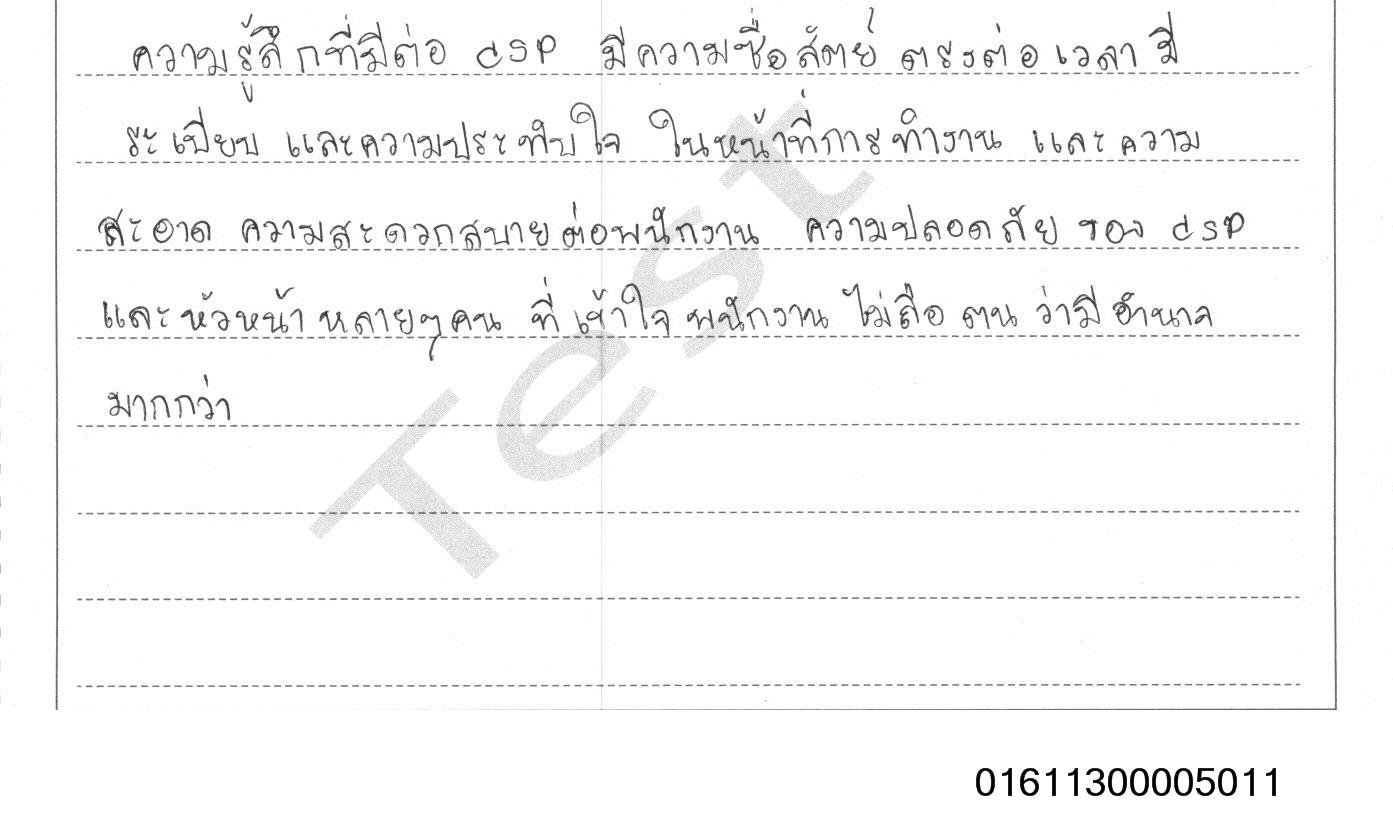 ความรู้สึกที่มีต่อ dSP มีความซื่อสัตย์ ตรงต่อเวลา มี
ระเบียบ และความประทับใจ ในหน้าที่การทำงาน และความ
สะอาด ความสะดวกสบายต่อพนักงาน ความปลอดภัย ของ dSP
และหัวหน้าหลายๆคน ที่เข้าใจ พนักงาน ไม่ถือ ตน ว่ามี อำนาจ
มากกว่า
Test
01611300005011